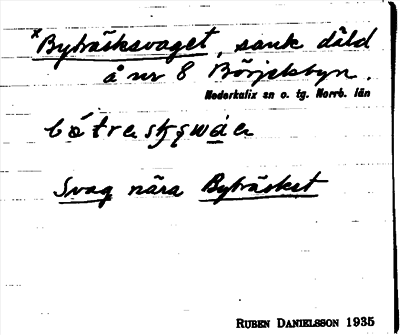 *Byträsksvaget, sank däld
å nr 8 Börjelsbyn.
Nederkalix sn o. tg. Norrb. län
Svag nära Byträsket
RUBEN DANIELSSON 1935